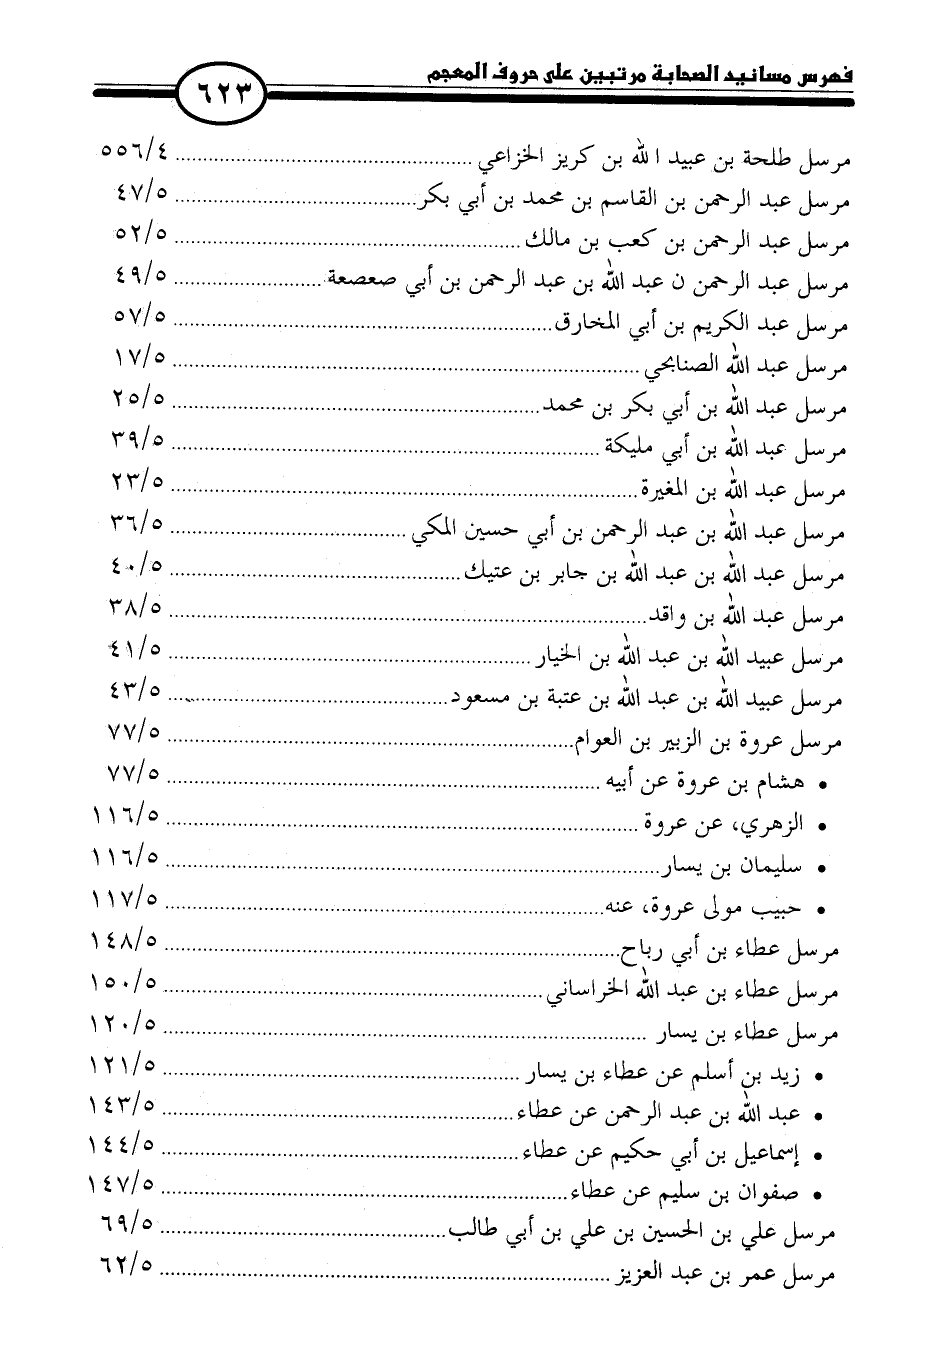 فهرس مسانيد الصحابة مرتبين على حروف المعجم
٦٢٣
مرسل طلحة بن عبيد الله بن كريز الخزاعي ٥٥٦/٤
مرسل عبد الرحمن بن القاسم بن محمد بن أبي بكر ٤٧/٥
مرسل عبد الرحمن بن كعب بن مالك ٥٢/٥
مرسل عبد الرحمن ن عبد الله بن عبد الرحمن بن أبي صعصعة ٤٩/٥
مرسل عبد الكريم بن أبي المخارق ٥٧/٥
مرسل عبد الله الصنابحي ١٧/٥
مرسل عبد الله بن أبي بكر بن محمد ٢٥/٥
مرسل عبد الله بن أبي مليكة ٣٩/٥
مرسل عبد الله بن المغيرة ٢٣/٥
مرسل عبد الله بن عبد الرحمن بن أبي حسين المكي ٣٦/٥
مرسل عبد الله بن عبد الله بن جابر بن عتيك ٤٠/٥
مرسل عبد الله بن واقد ٣٨/٥
مرسل عبيد الله بن عبد الله بن الخيار ٤١/٥
مرسل عبيد الله بن عبد الله بن عتبة بن مسعود ٤٣/٥
مرسل عروة بن الزبير بن العوام ٧٧/٥
• هشام بن عروة عن أبيه ٧٧/٥
• الزهري، عن عروة ١١٦/٥
• سليمان بن يسار ١١٦/٥
• حبيب مولى عروة، عنه ١١٧/٥
مرسل عطاء بن أبي رباح ١٤٨/٥
مرسل عطاء بن عبد الله الخراساني ١٥٠/٥
مرسل عطاء بن يسار ١٢٠/٥
• زيد بن أسلم عن عطاء بن يسار ١٢١/٥
• عبد الله بن عبد الرحمن عن عطاء ١٤٣/٥
• إسماعيل بن أبي حكيم عن عطاء ١٤٤/٥
• صفوان بن سليم عن عطاء ١٤٧/٥
مرسل علي بن الحسين بن علي بن أبي طالب ٦٩/٥
مرسل عمر بن عبد العزيز ٦٢/٥